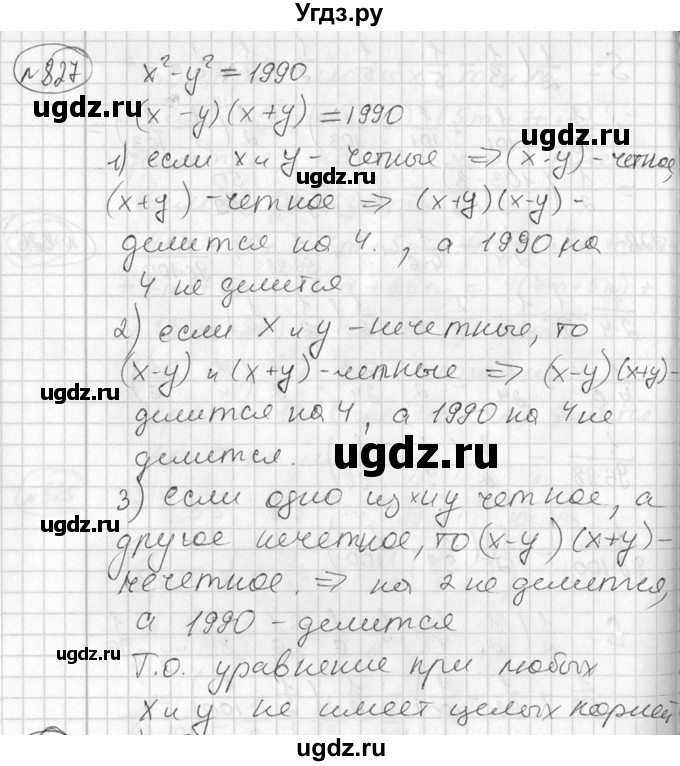 Угдз.ру
№827 x² - y² = 1990
ugdz.ru
(x - y)(x + y) = 1990
1) если x и y - четные ⇒ (x - y) - четное,
ugdz.ru
(x + y) - четное ⇒ (x + y)(x - y) -
делится на 4., а 1990 на
ugdz.ru
4 не делится
2) если x и y - нечетные, то
(x - y) и (x + y) - четные ⇒ (x - y)(x + y) -
ugdz.ru
делится на 4, а 1990 на 4 не
делится.
ugdz.ru
3) если одно из x и y четное, а
ugdz.ru
другое нечетное, то (x - y)(x + y) -
нечетное. ⇒ на 2 не делится,
ugdz.ru
а 1990 - делится
ugdz.ru
Т.о. уравнение при любых
x и y не имеет целых корней
ugdz.ru
ugdz.ru